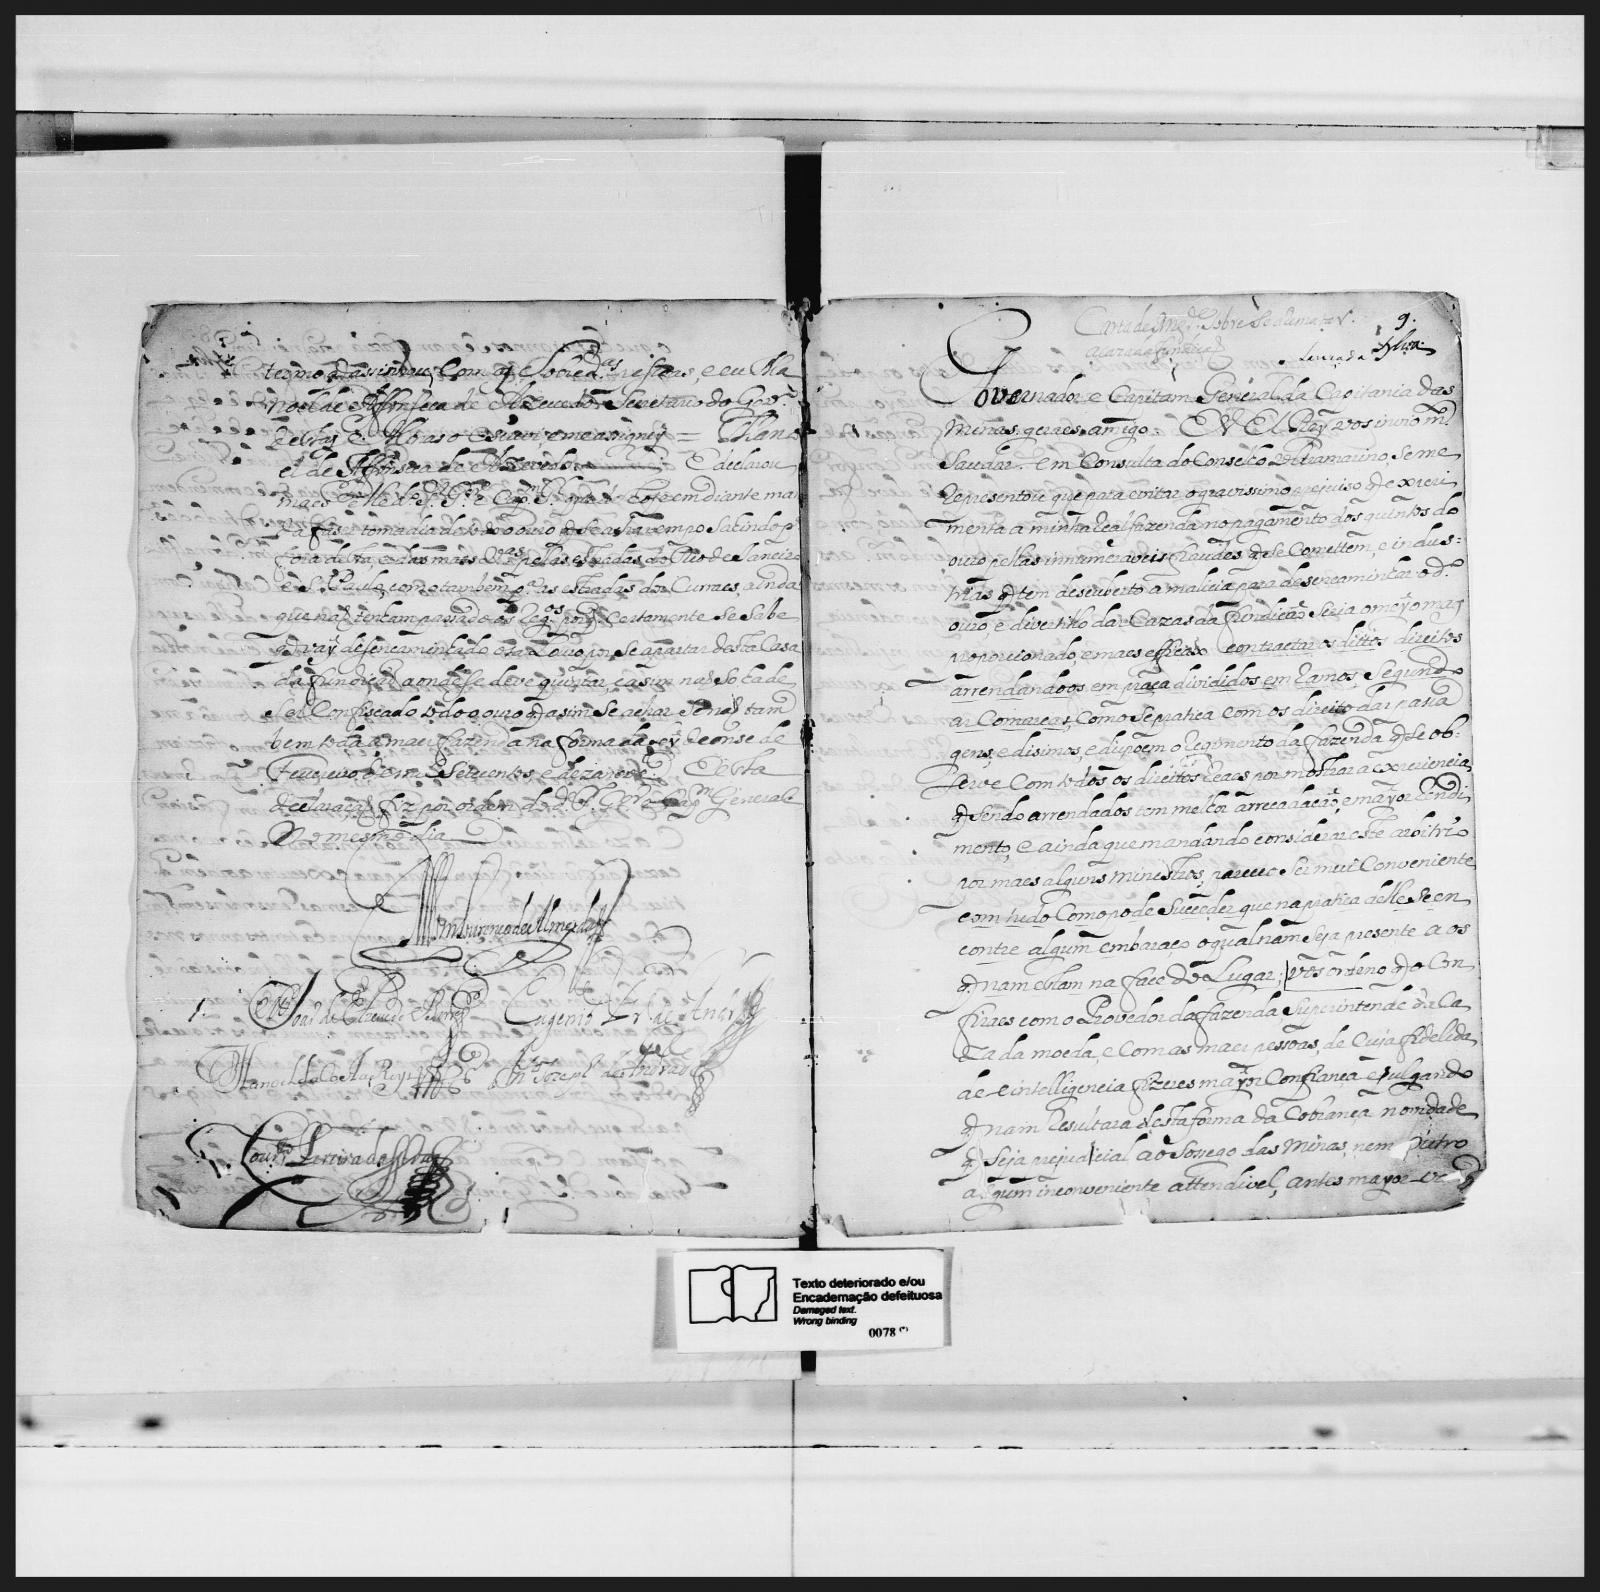 termo q assinou, com as sobred.as pessoas, e eu Ma
noel de Affonseca de Azevedo Secretario do Gov.o
destas Minas o escrevi e me assigney = Mano
el de Affonseca de Azevedo E declarou
mais elle d.o S.r G.or e Cap.m G.l que de hoje em diante man
da fazer tomadia de todo o ouro q se achar em po sahindo p.a
fora desta, e das mais V.as pellas estradas do Rio de Janeiro
e S. Paulo, como tambem p.as estradas dos Curraes, ainda
que não tenham passado os Reg.os porq certamente se sabe
q vay desencaminhado o tal ouro por se apartar desta Casa
da fundição aonde se deve quintar, e asim não só ha de
ser confiscado todo o ouro q asim se achar senão tam
bem toda a mais fazenda na forma da Ley de onse de
Fevereiro de mil setecentos e dezanove. E esta
declaração fiz por ordem do d.o S.r G.or e Cap.m General
No mesmo dia
Dom Lourenço de Almeyda
Eugenio Freire de Andr.e
Manoel da Costa Reys
Lour.ço Pereira da Silva
Carta de S. Mg.de sobre se rematar
a caza da fundição
9.
Lançada
Governador e Capitam General da Capitania das
Minas geraes amigo. EU ELRey vos invio m.to
saudar. Em Consulta do Conselho Ultramarino, se me
representou que para evitar o gravissimo prejuiso q exveri
menta a minha real fazenda no pagamento dos quintos do
ouro pellas innumeraveis fraudes q se comettem, e indus=
trias q tem descuberto a malicia para desencaminhar o d.o
ouro, e divertillo das Cazas da fundição seria o meyo mais
proporcionado, e maes efficás contractar os dittos direitos
arrendandoos em praça divididos em ramos, segundo
as Comarcas, como se pratica com os direitos das pasia
gens, e disimos, e dispoem o regimento da fazenda q se ob=
serve com todos os direitos reaes por mostrar a experiencia
q sendo arrendados tem melhor arrecadação, e mayor rendi
mento, e ainda que mandando considerar este arbitrio
por maes alguns ministros, pareceo ser mui conveniente
com tudo como pode succeder que na pratica delle se en
contre algum embaraço o qual nam seja presente a os
q nam estam na face do Lugar; vos ordeno q o con
firaes com o Provedor da fazenda Superintende da Ca
za da moeda, e com as maes pessoas, de cuja fidelida
de e intelligencia fizeres mayor confiança e julgando
q nam resultara desta forma da cobrança novidade
q seja prejudicial ao sosego das Minas, nem outro
algum inconveniente attendivel, antes mayor
Texto deteriorado e/ou
Encadernação defeituosa
Damaged text.
Wrong binding
0078 (*)